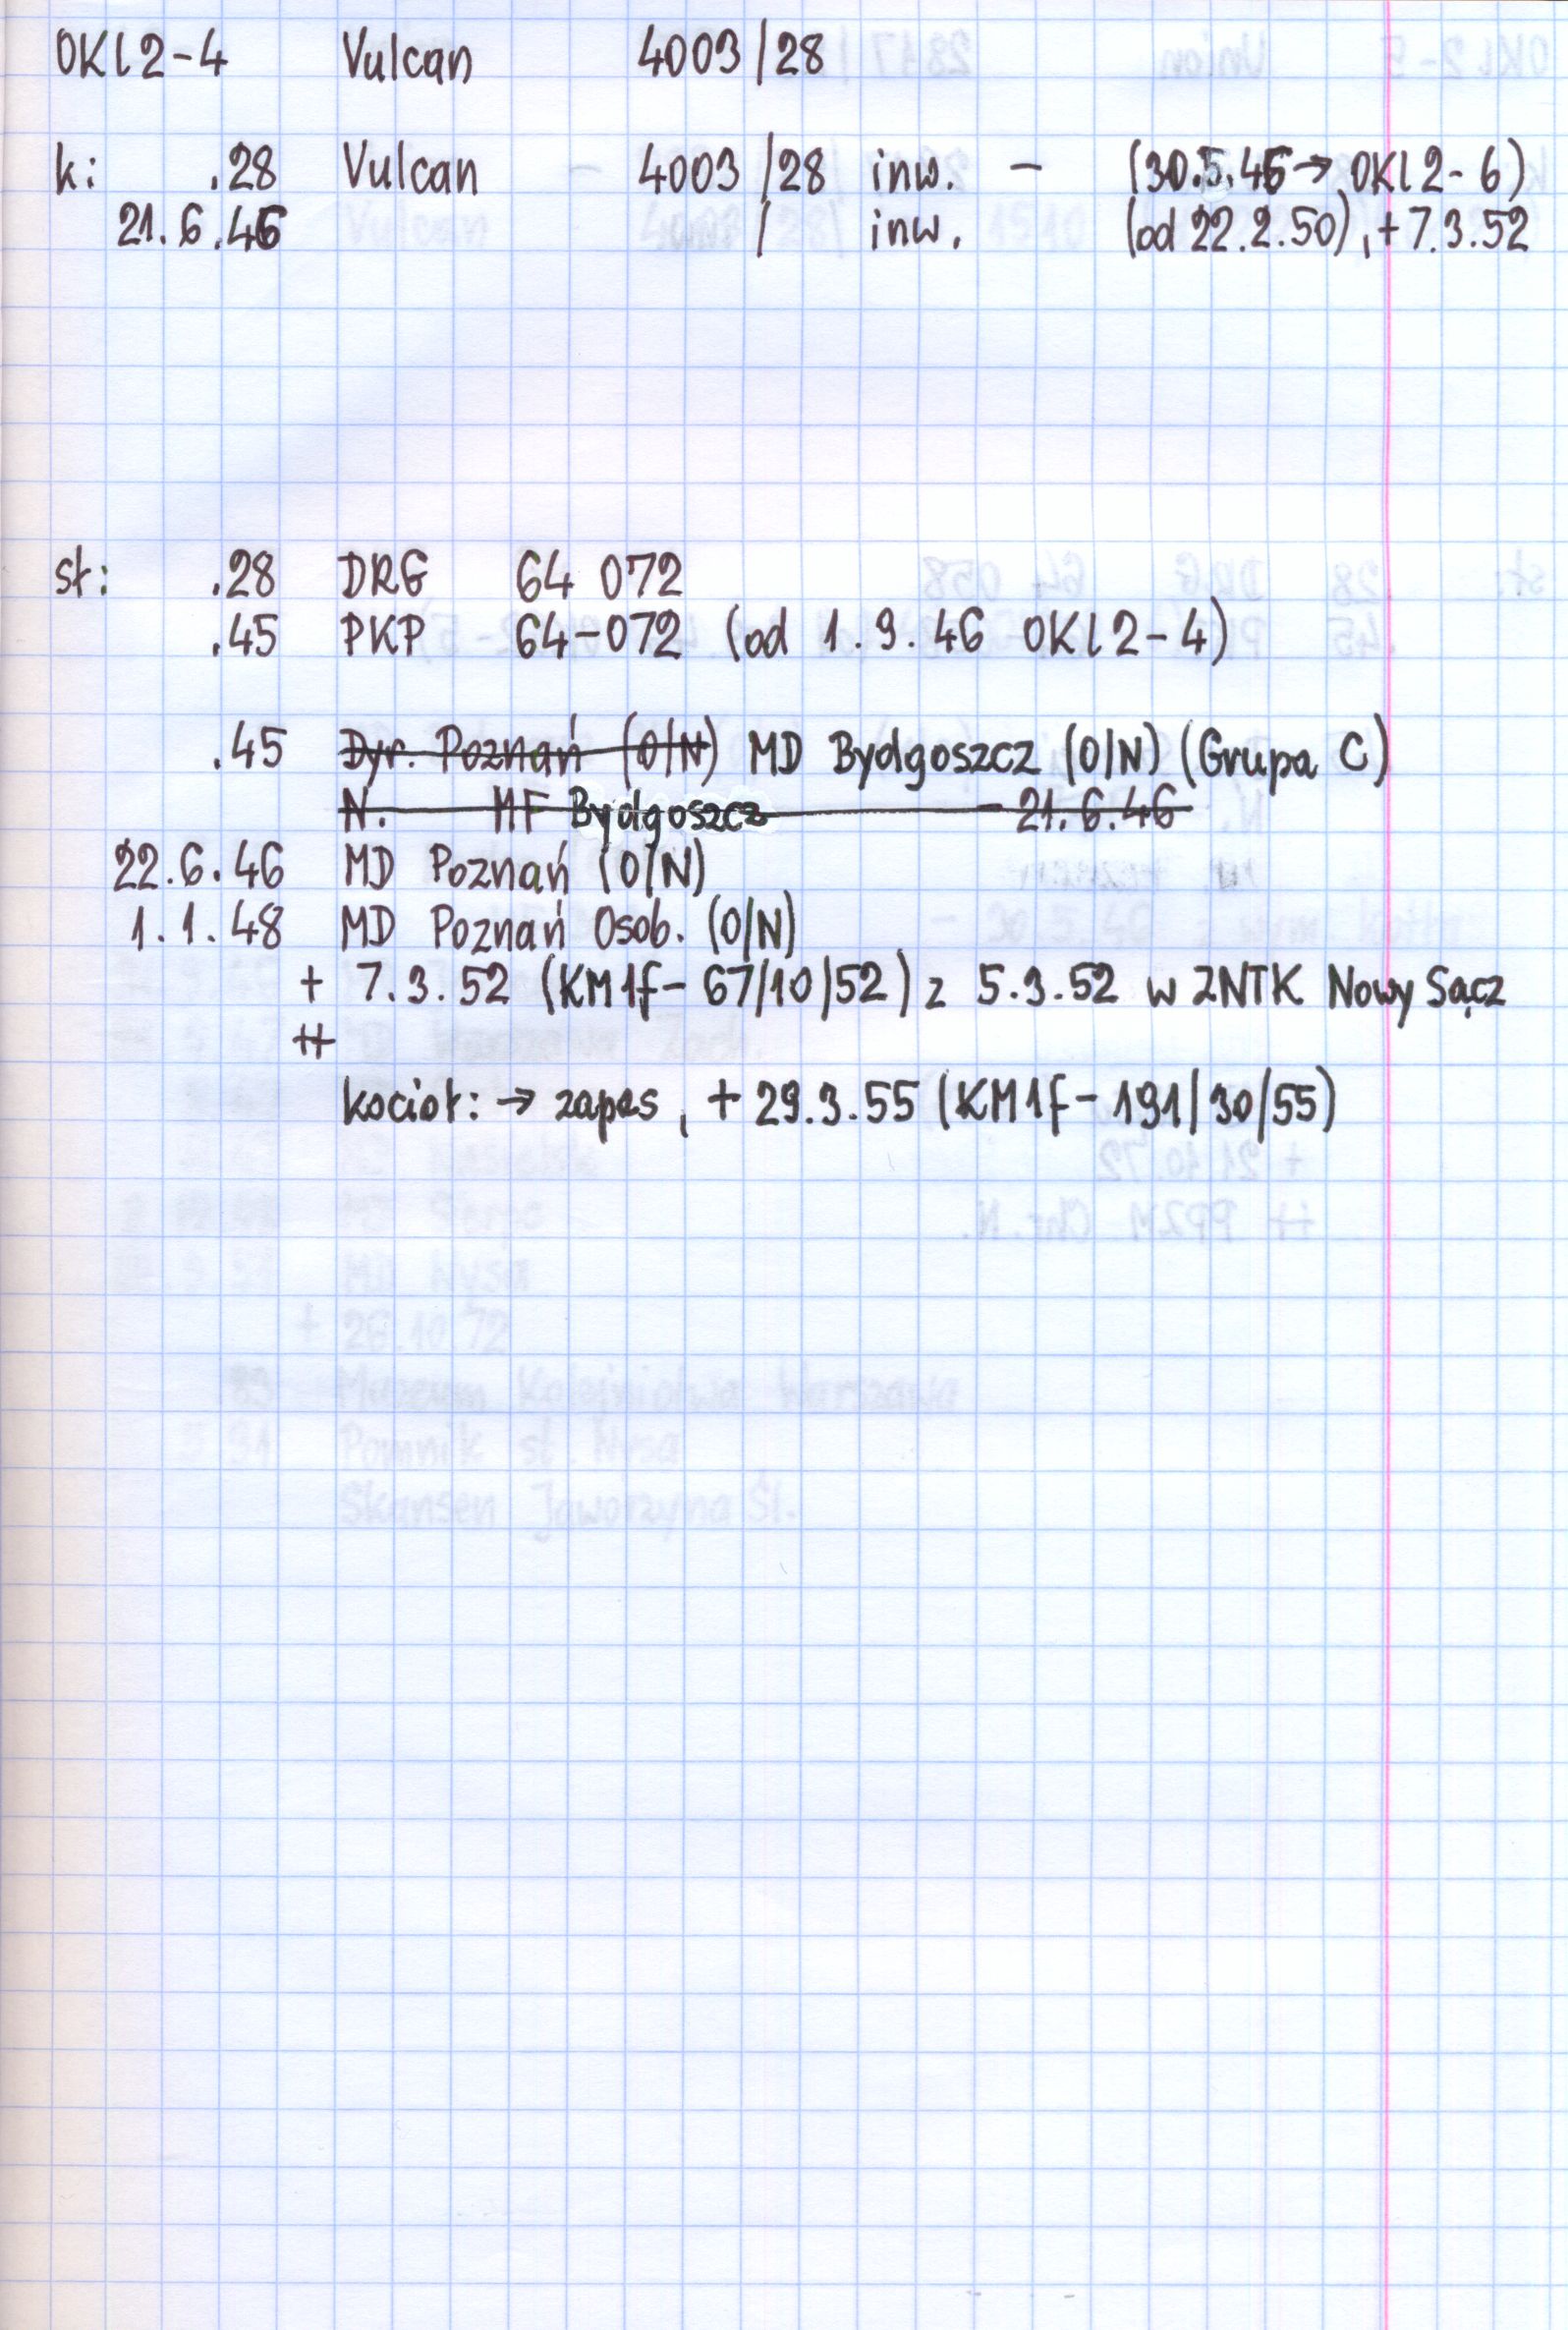 OKl2-4 Vulcan 4003/28
k: .28 Vulcan - 4003/28 inw. - (30.5.46 → OKl2-6)
21.6.46 / inw. (od 22.2.50), +7.3.52
st: .28 DRG 64 072
.45 PKP 64-072 (od 1.9.46 OKl2-4)
.45 Dyr. Poznań (O/N) MD Bydgoszcz (O/N) (Grupa C)
N. MF Bydgoszcz - 21.6.46
22.6.46 MD Poznań (O/N)
1.1.48 MD Poznań Osob. (O/N)
+ 7.3.52 (KM1f-67/10/52) z 5.3.52 w ZNTK Nowy Sącz
++
kocioł: → zapas, + 29.3.55 (KM1f-191/30/55)
+ 26.10.72
83 Muzeum Kolejnictwa Warszawa
5.91 Pomnik st. Nysa
Skansen Jaworzyna Śl.